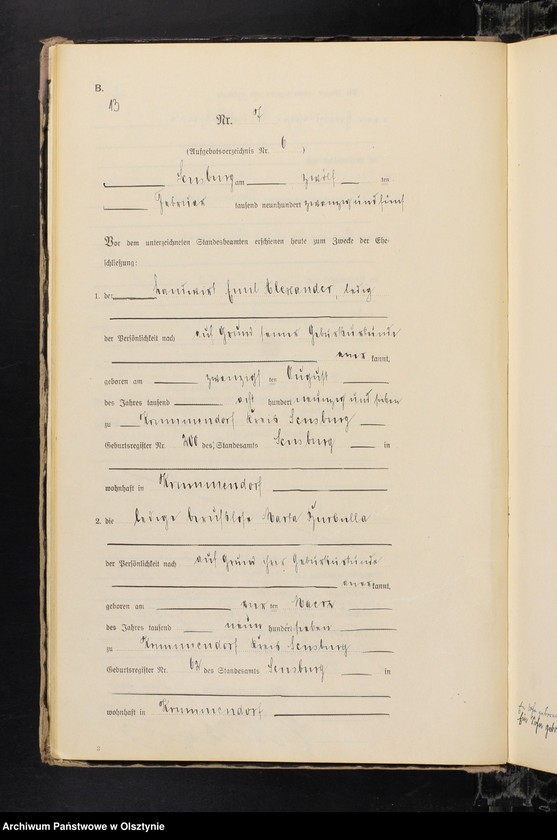 B.
13
Nr. 7
(Aufgebotsverzeichnis Nr. 6)
Sensburg am zwölf ten
Februar tausend neunhundert zwanzig und fünf
Vor dem unterzeichneten Standesbeamten erschienen heute zum Zwecke der Ehe-
schließung:
1. der Landwirt Emil Alexander, ledig
der Persönlichkeit nach auf Grund seiner Geburtsurkunde
kannt,
geboren am zwanzigsten August
des Jahres tausend acht hundert neunzig und sieben
zu Krummendorf Kreis Sensburg
Geburtsregister Nr. 200 des Standesamts Sensburg in
wohnhaft in Krummendorf
2. die ledige berufslose Marta
der Persönlichkeit nach auf Grund ihrer Geburtsurkunde
kannt,
geboren am ten Maerz
des Jahres tausend neun hundert sieben
zu Krummendorf Kreis Sensburg
Geburtsregister Nr. des Standesamts Sensburg in
wohnhaft in Krummendorf
Archiwum Państwowe w Olsztynie